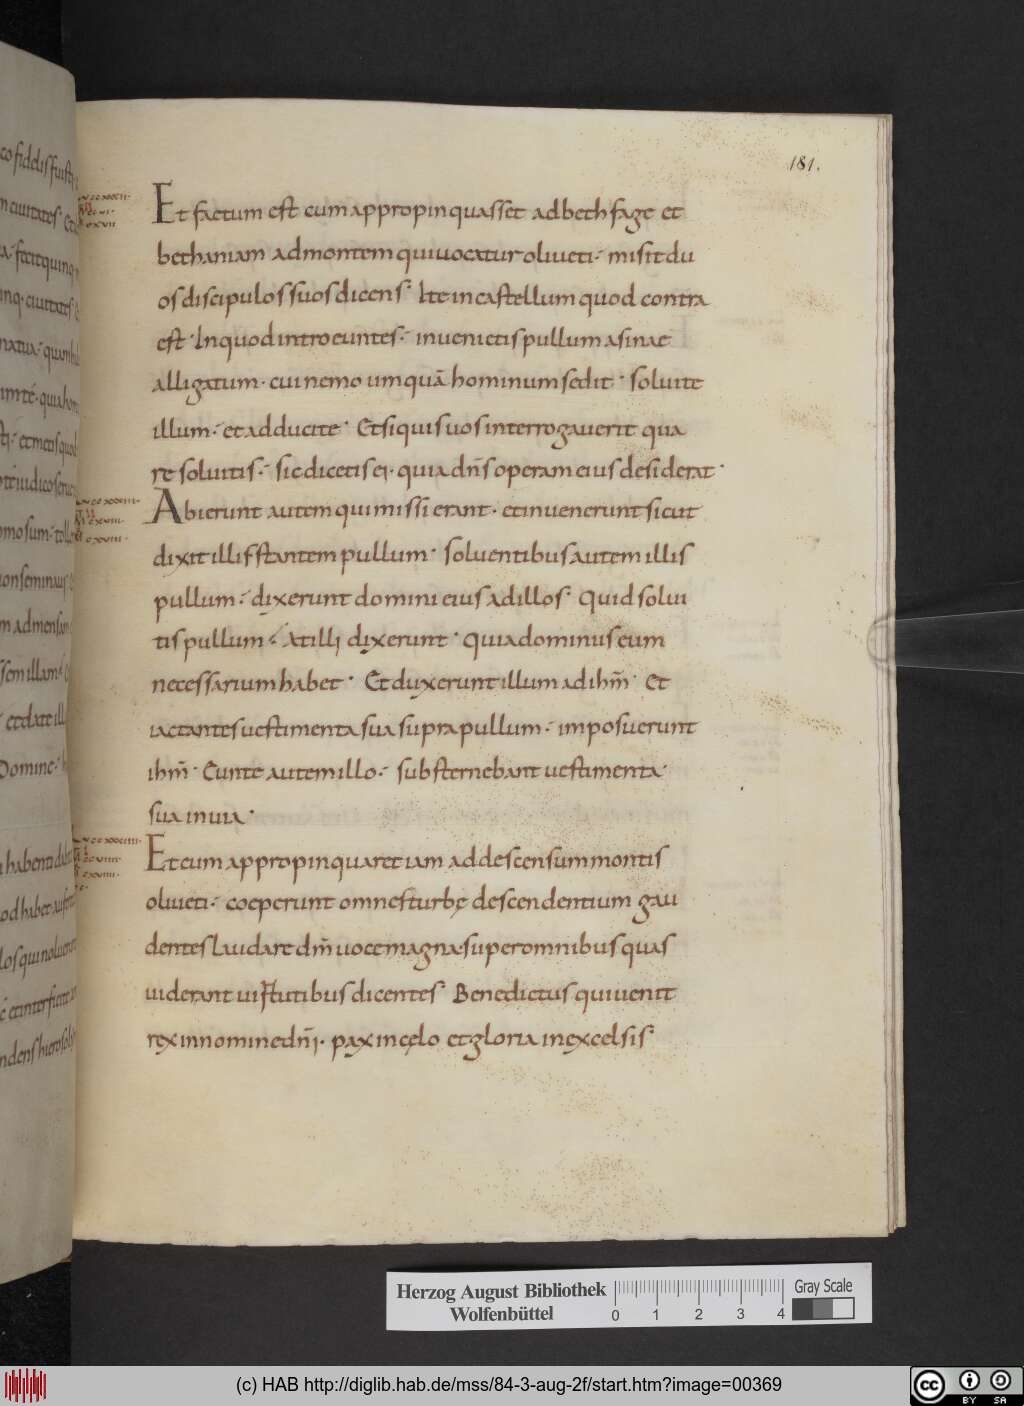 181.
Et factum est cum appropinquasset ad bethfage et
bethaniam ad montem qui vocatur oliueti· misit du
os discipulos suos dicens· Ite in castellum quod contra
est· In quod introeuntes· inuenietis pullum asinae
alligatum· cui nemo umquā hominum sedit· soluite
illum· et adducite· Et si quis uos interrogauerit qua
re soluitis· sic dicetis ei· quia dn̄s operam eius desiderat·
Abierunt autem qui missi erant· et inuenerunt sicut
dixit illis stantem pullum· soluentibus autem illis
pullum· dixerunt domini eius ad illos· Quid solui
tis pullum· At illi dixerunt· quia dominus eum
necessarium habet· Et duxerunt illum ad ihm̄· Et
iactantes uestimenta sua supra pullum· imposuerunt
ihm̄· Eunte autem illo· substernebant uestimenta
sua in uia·
Et cum appropinquaret iam ad descensum montis
oliueti· coeperunt omnes turbę descendentium gau
dentes laudare dm̄ uoce magna· super omnibus quas
uiderant uirtutibus dicentes· Benedictus qui uenit
rex in nomine dn̄i· pax in cęlo et gloria in excelsis·
Herzog August Bibliothek
Wolfenbüttel
0 1 2 3 4
Gray Scale
(c) HAB http://diglib.hab.de/mss/84-3-aug-2f/start.htm?image=00369
cc BY SA